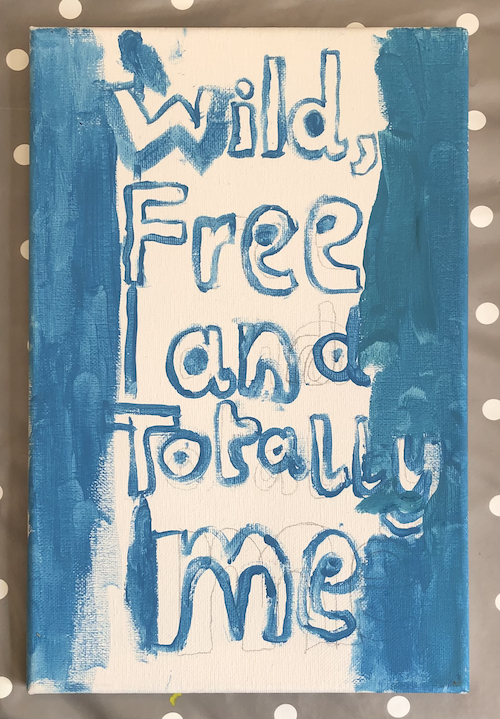 Wild,
Free
and
Totally
me